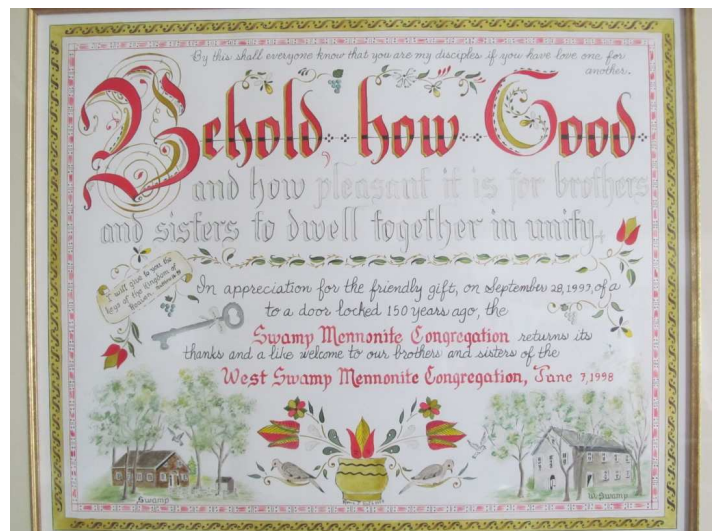 By this shall everyone know that you are my disciples if you have love one for
another.
Behold, how Good
and how pleasant it is for brothers
and sisters to dwell together in unity.
I will give to you the
keys of the kingdom of
heaven.
In appreciation for the friendly gift, on September 28, 1997, of a
to a door locked 150 years ago, the
Swamp Mennonite Congregation returns its
thanks and a like welcome to our brothers and sisters of the
West Swamp Mennonite Congregation, June 7, 1998
Swamp
W. Swamp